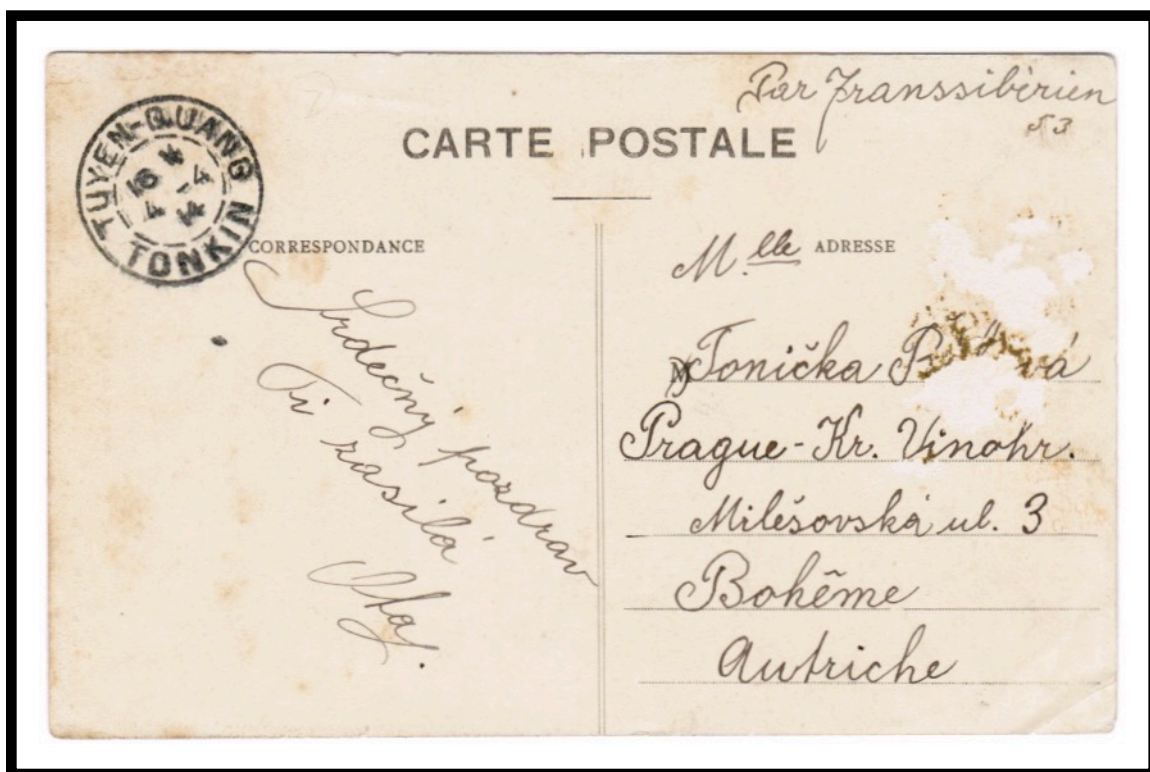 Par Transsibérien
53
CARTE POSTALE
TUYEN-QUANG
16
4 -4
14
TONKIN
CORRESPONDANCE
Srdečný pozdrav
Ti zasílá
Ota.
ADRESSE
Mlle
Tonička
Prague-Kr. Vinohr.
Milésovská ul. 3
Bohême
Autriche